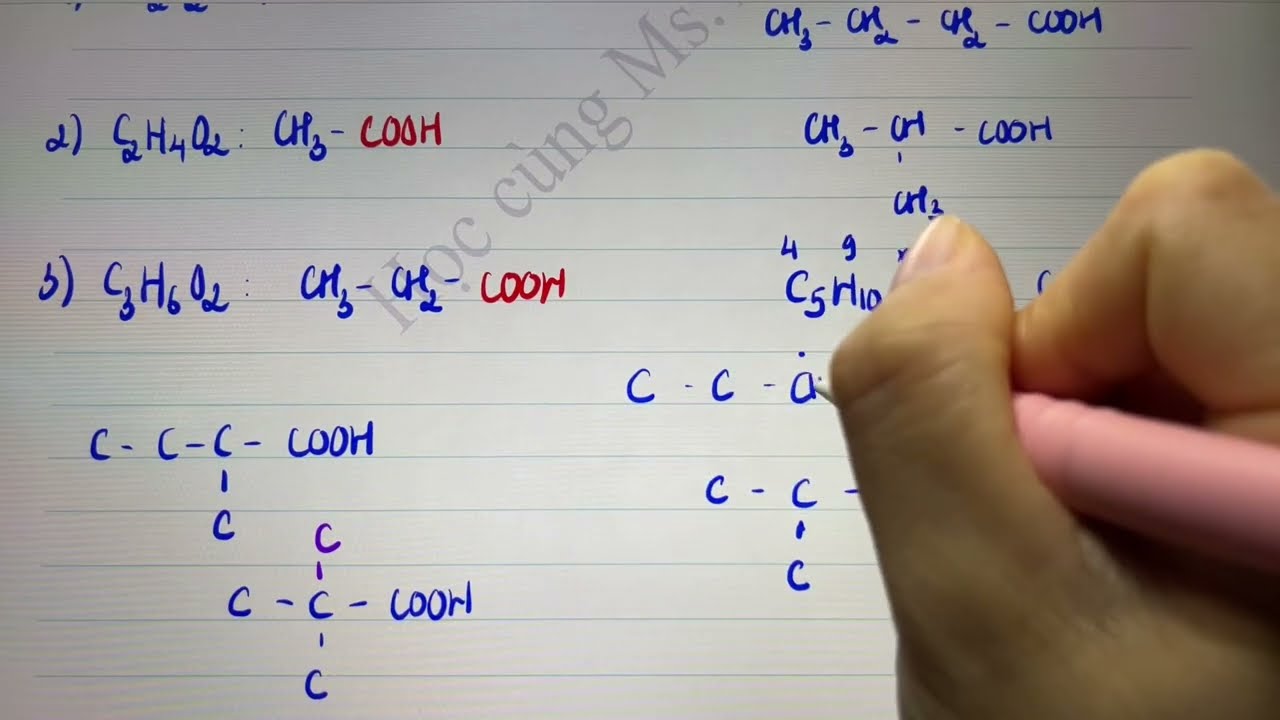 CH₃ - CH₂ - CH₂ - COOH
2) C₂H₄O₂ : CH₃ - COOH
CH₃ - CH - COOH
CH₃
Học cùng Ms.
3) C₃H₆O₂ : CH₃ - CH₂ - COOH
4 9
C₅H₁₀
C - C - C
C - C - C - COOH
C
C - C -
C
C
C - C - COOH
C